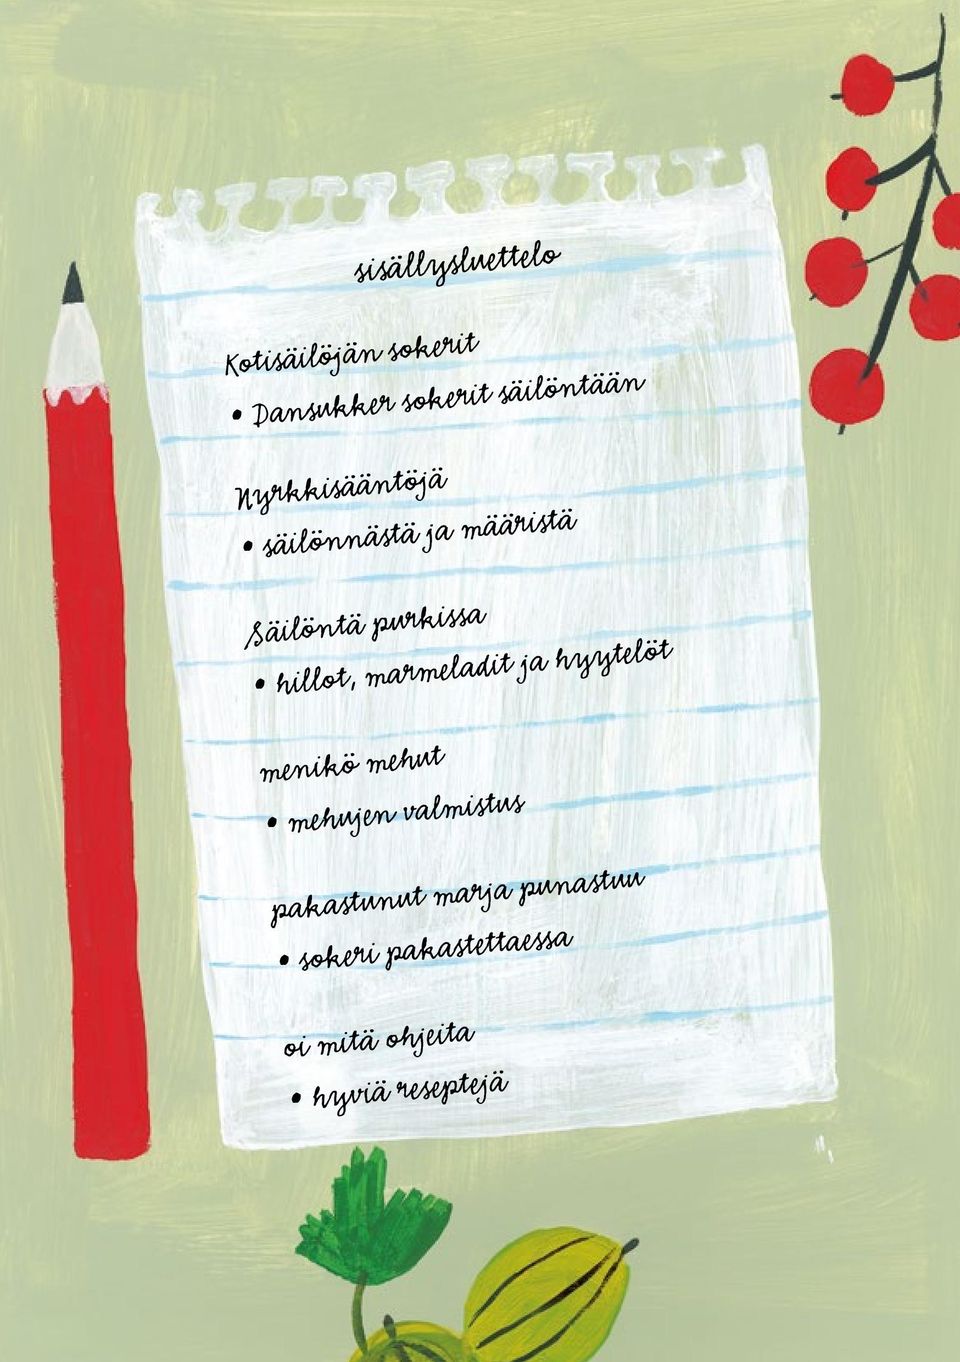 sisällysluettelo
Kotisäilöjän sokerit
• Dansukker sokerit säilöntään
Nyrkkisääntöjä
• säilönnästä ja määristä
Säilöntä purkissa
• hillot, marmeladit ja hyytelöt
menikö mehut
• mehujen valmistus
pakastunut marja punastuu
• sokeri pakastettaessa
oi mitä ohjeita
• hyviä reseptejä